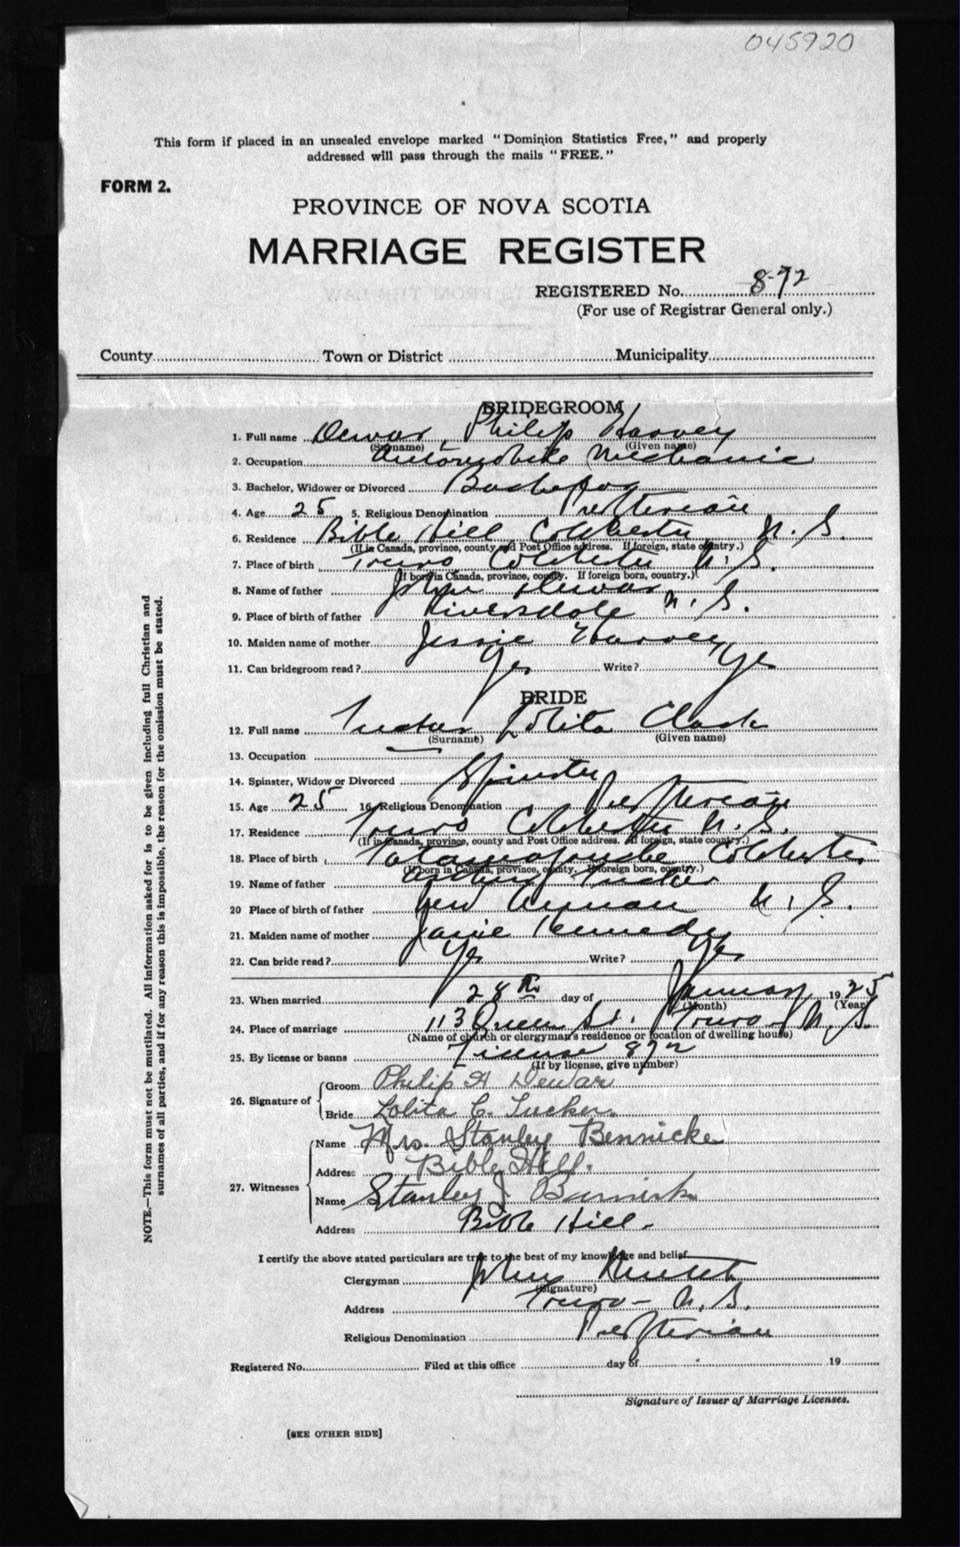 045920
This form if placed in an unsealed envelope marked "Dominion Statistics Free," and properly
addressed will pass through the mails "FREE."
FORM 2.
PROVINCE OF NOVA SCOTIA
MARRIAGE REGISTER
REGISTERED No. 872
(For use of Registrar General only.)
County Town or District Municipality
BRIDEGROOM
1. Full name Dewar, Philip Harvey
(Surname) (Given name)
2. Occupation Automobile Mechanic
3. Bachelor, Widower or Divorced Bachelor
4. Age 25 5. Religious Denomination Presbyterian
6. Residence Bible Hill Colchester N. S.
(If in Canada, province, county and Post Office address. If foreign, state country.)
7. Place of birth Truro Colchester N. S.
(If born in Canada, province, county. If foreign born, country.)
8. Name of father John Dewar
9. Place of birth of father Riversdale N. S.
10. Maiden name of mother Jessie Harvey
11. Can bridegroom read? Yes Write? Yes
BRIDE
12. Full name Tucker Lolita Clark
(Surname) (Given name)
13. Occupation
14. Spinster, Widow or Divorced Spinster
15. Age 25 16. Religious Denomination Presbyterian
17. Residence Truro Colchester N. S.
(If in Canada, province, county and Post Office address. If foreign, state country.)
18. Place of birth Tatamagouche Colchester
(If born in Canada, province, county. If foreign born, country.)
19. Name of father Tucker
20 Place of birth of father New Annan N. S.
21. Maiden name of mother Janie Kennedy
22. Can bride read? Yes Write? Yes
23. When married 28th day of January 1925
(Month) (Year)
24. Place of marriage 113 Queen St. Truro - N. S.
(Name of church or clergyman's residence or location of dwelling house)
25. By license or banns License 872
(If by license, give number)
26. Signature of Groom Philip H Dewar
Bride Lolita C. Tucker.
27. Witnesses Name Mrs. Stanley Bennicke
Address Bible Hill.
Name Stanley J
Address Bible Hill.
I certify the above stated particulars are true to the best of my knowledge and belief.
Clergyman John
(Signature)
Address Truro - N. S.
Religious Denomination Presbyterian
Registered No. Filed at this office day of 19
Signature of Issuer of Marriage Licenses.
[SEE OTHER SIDE]
NOTE.—This form must not be mutilated. All information asked for is to be given including full Christian and
surnames of all parties, and if for any reason this is impossible, the reason for the omission must be stated.